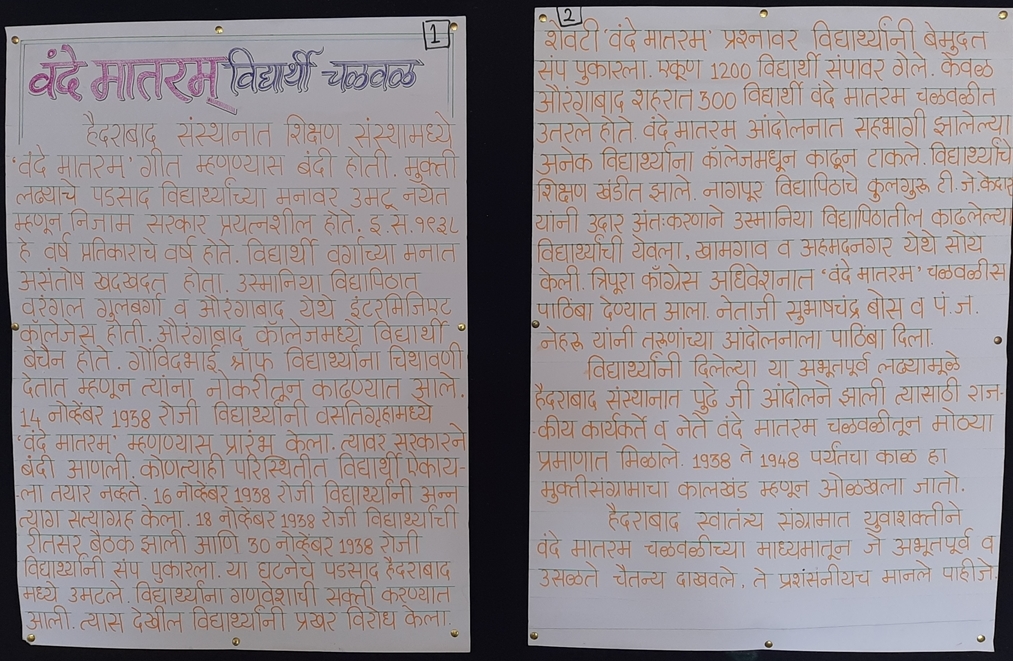 1
वंदे मातरम् विद्यार्थी चळवळ
हैदराबाद संस्थानात शिक्षण संस्थामध्ये
'वंदे मातरम' गीत म्हणण्यास बंदी होती. मुक्ती
लढ्याचे पडसाद विद्यार्थ्यांच्या मनावर उमटू नयेत
म्हणून निजाम सरकार प्रयत्नशील होते. इ.स.१९३८
हे वर्ष प्रतिकाराचे वर्ष होते. विद्यार्थी वर्गाच्या मनात
असंतोष खदखदत होता. उस्मानिया विद्यापिठात
वरंगल गुलबर्गा व औरंगाबाद येथे इंटरमिजिएट
कॉलेजेस होती. औरंगाबाद कॉलेजमध्ये विद्यार्थी
बेचैन होते. गोविंदभाई श्रॉफ विद्यार्थ्यांना चिथावणी
देतात म्हणून त्यांना नोकरीतून काढण्यात आले.
14 नोव्हेंबर 1938 रोजी विद्यार्थ्यांनी वसतिगृहामध्ये
'वंदे मातरम्' म्हणण्यास प्रारंभ केला. त्यावर सरकारने
बंदी आणली. कोणत्याही परिस्थितीत विद्यार्थी ऐकाय-
-ला तयार नव्हते. 16 नोव्हेंबर 1938 रोजी विद्यार्थ्यांनी अन्न
त्याग सत्याग्रह केला. 18 नोव्हेंबर 1938 रोजी विद्यार्थ्यांची
रीतसर बैठक झाली आणि 30 नोव्हेंबर 1938 रोजी
विद्यार्थ्यांनी संप पुकारला. या घटनेचे पडसाद हैदराबाद
मध्ये उमटले. विद्यार्थ्यांना गणवेशाची सक्ती करण्यात
आली. त्यास देखील विद्यार्थ्यांनी प्रखर विरोध केला.
2
शेवटी 'वंदे मातरम' प्रश्नावर विद्यार्थ्यांनी बेमुदत
संप पुकारला. एकूण 1200 विद्यार्थी संपावर गेले. केवळ
औरंगाबाद शहरात 300 विद्यार्थी वंदे मातरम चळवळीत
उतरले होते. वंदे मातरम आंदोलनात सहभागी झालेल्या
अनेक विद्यार्थ्यांना कॉलेजमधून काढून टाकले. विद्यार्थ्यांचे
शिक्षण खंडीत झाले. नागपूर विद्यापिठाचे कुलगुरू टी.जे.केदार
यांनी उदार अंतःकरणाने उस्मानिया विद्यापिठातील काढलेल्या
विद्यार्थ्यांची येवला, खामगाव व अहमदनगर येथे सोय
केली. त्रिपूरा काँग्रेस अधिवेशनात 'वंदे मातरम' चळवळीस
पाठिंबा देण्यात आला. नेताजी सुभाषचंद्र बोस व पं. ज.
नेहरू यांनी तरूणांच्या आंदोलनाला पाठिंबा दिला.
विद्यार्थ्यांनी दिलेल्या या अभूतपूर्व लढ्यामूळे
हैदराबाद संस्थानात पुढे जी आंदोलने झाली त्यासाठी राज-
-कीय कार्यकर्ते व नेते वंदे मातरम चळवळीतून मोठ्या
प्रमाणात मिळाले. 1938 ते 1948 पर्यंतचा काळ हा
मुक्तीसंग्रामाचा कालखंड म्हणून ओळखला जातो.
हैदराबाद स्वातंत्र्य संग्रामात युवाशक्तीने
वंदे मातरम चळवळीच्या माध्यमातून जे अभूतपूर्व व
उसळते चैतन्य दाखवले, ते प्रशंसनीयच मानले पाहीजे.